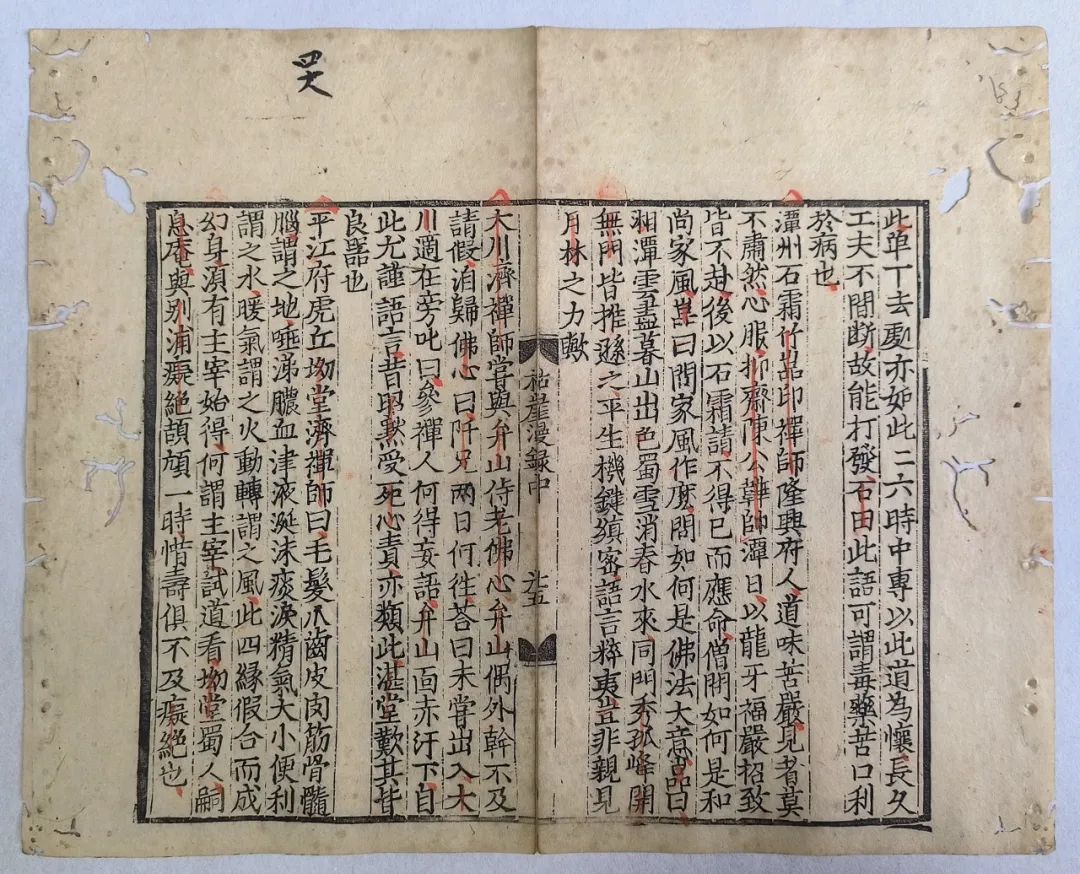 罒大
此單丁去處亦如此二六時中專以此道為懷長久
工夫不間斷故能打發石田此語可謂毒藥苦口利
於病也
潭州石霜竹嵓印禪師隆興府人道味苦嚴見者莫
不肅然心服抑齋陳公韡帥潭日以龍牙福嚴招致
皆不赴後以石霜請不得已而應命僧問如何是和
尚家風嵓曰問家風作麼問如何是佛法大意嵓曰
湘潭雲盡暮山出巴蜀雪消春水來同門秀孤峰開
無門皆推遜之平生機鍵縝密語言粹夷豈非親見
月林之力歟
枯崖漫錄中
廿五
大川濟禪師嘗與弁山侍老佛心弁山偶外幹不及
請假洎歸佛心曰阡兄兩日何徃荅曰未嘗出入大
川適在旁叱曰參禪人何得妄語弁山面赤汗下自
此尤謹語言昔昭默受死心責亦類此湛堂歎其皆
良器也
平江府虎丘㘭堂濟禪師曰毛髮爪齒皮肉筋骨髓
腦謂之地唾涕膿血津液涎沫痰淚精氣大小便利
謂之水暖氣謂之火動轉謂之風此四緣假合而成
幻身須有主宰始得何謂主宰試道看㘭堂蜀人嗣
息庵與別浦癡絕頡頏一時惜壽俱不及癡絕也